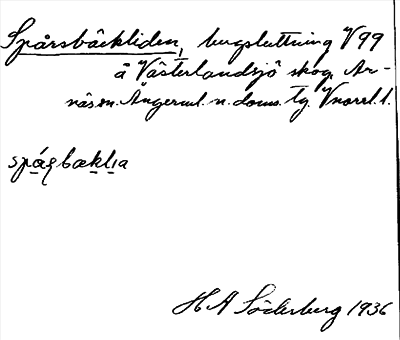 Spårsbäckliden, bergsluttning V 99
å Västerlandsjö skog. Ar-
näs sn. Ångerml. n. doms. tg. Vnorrl. l.
spáʂbæklıa
H A Söderberg 1936